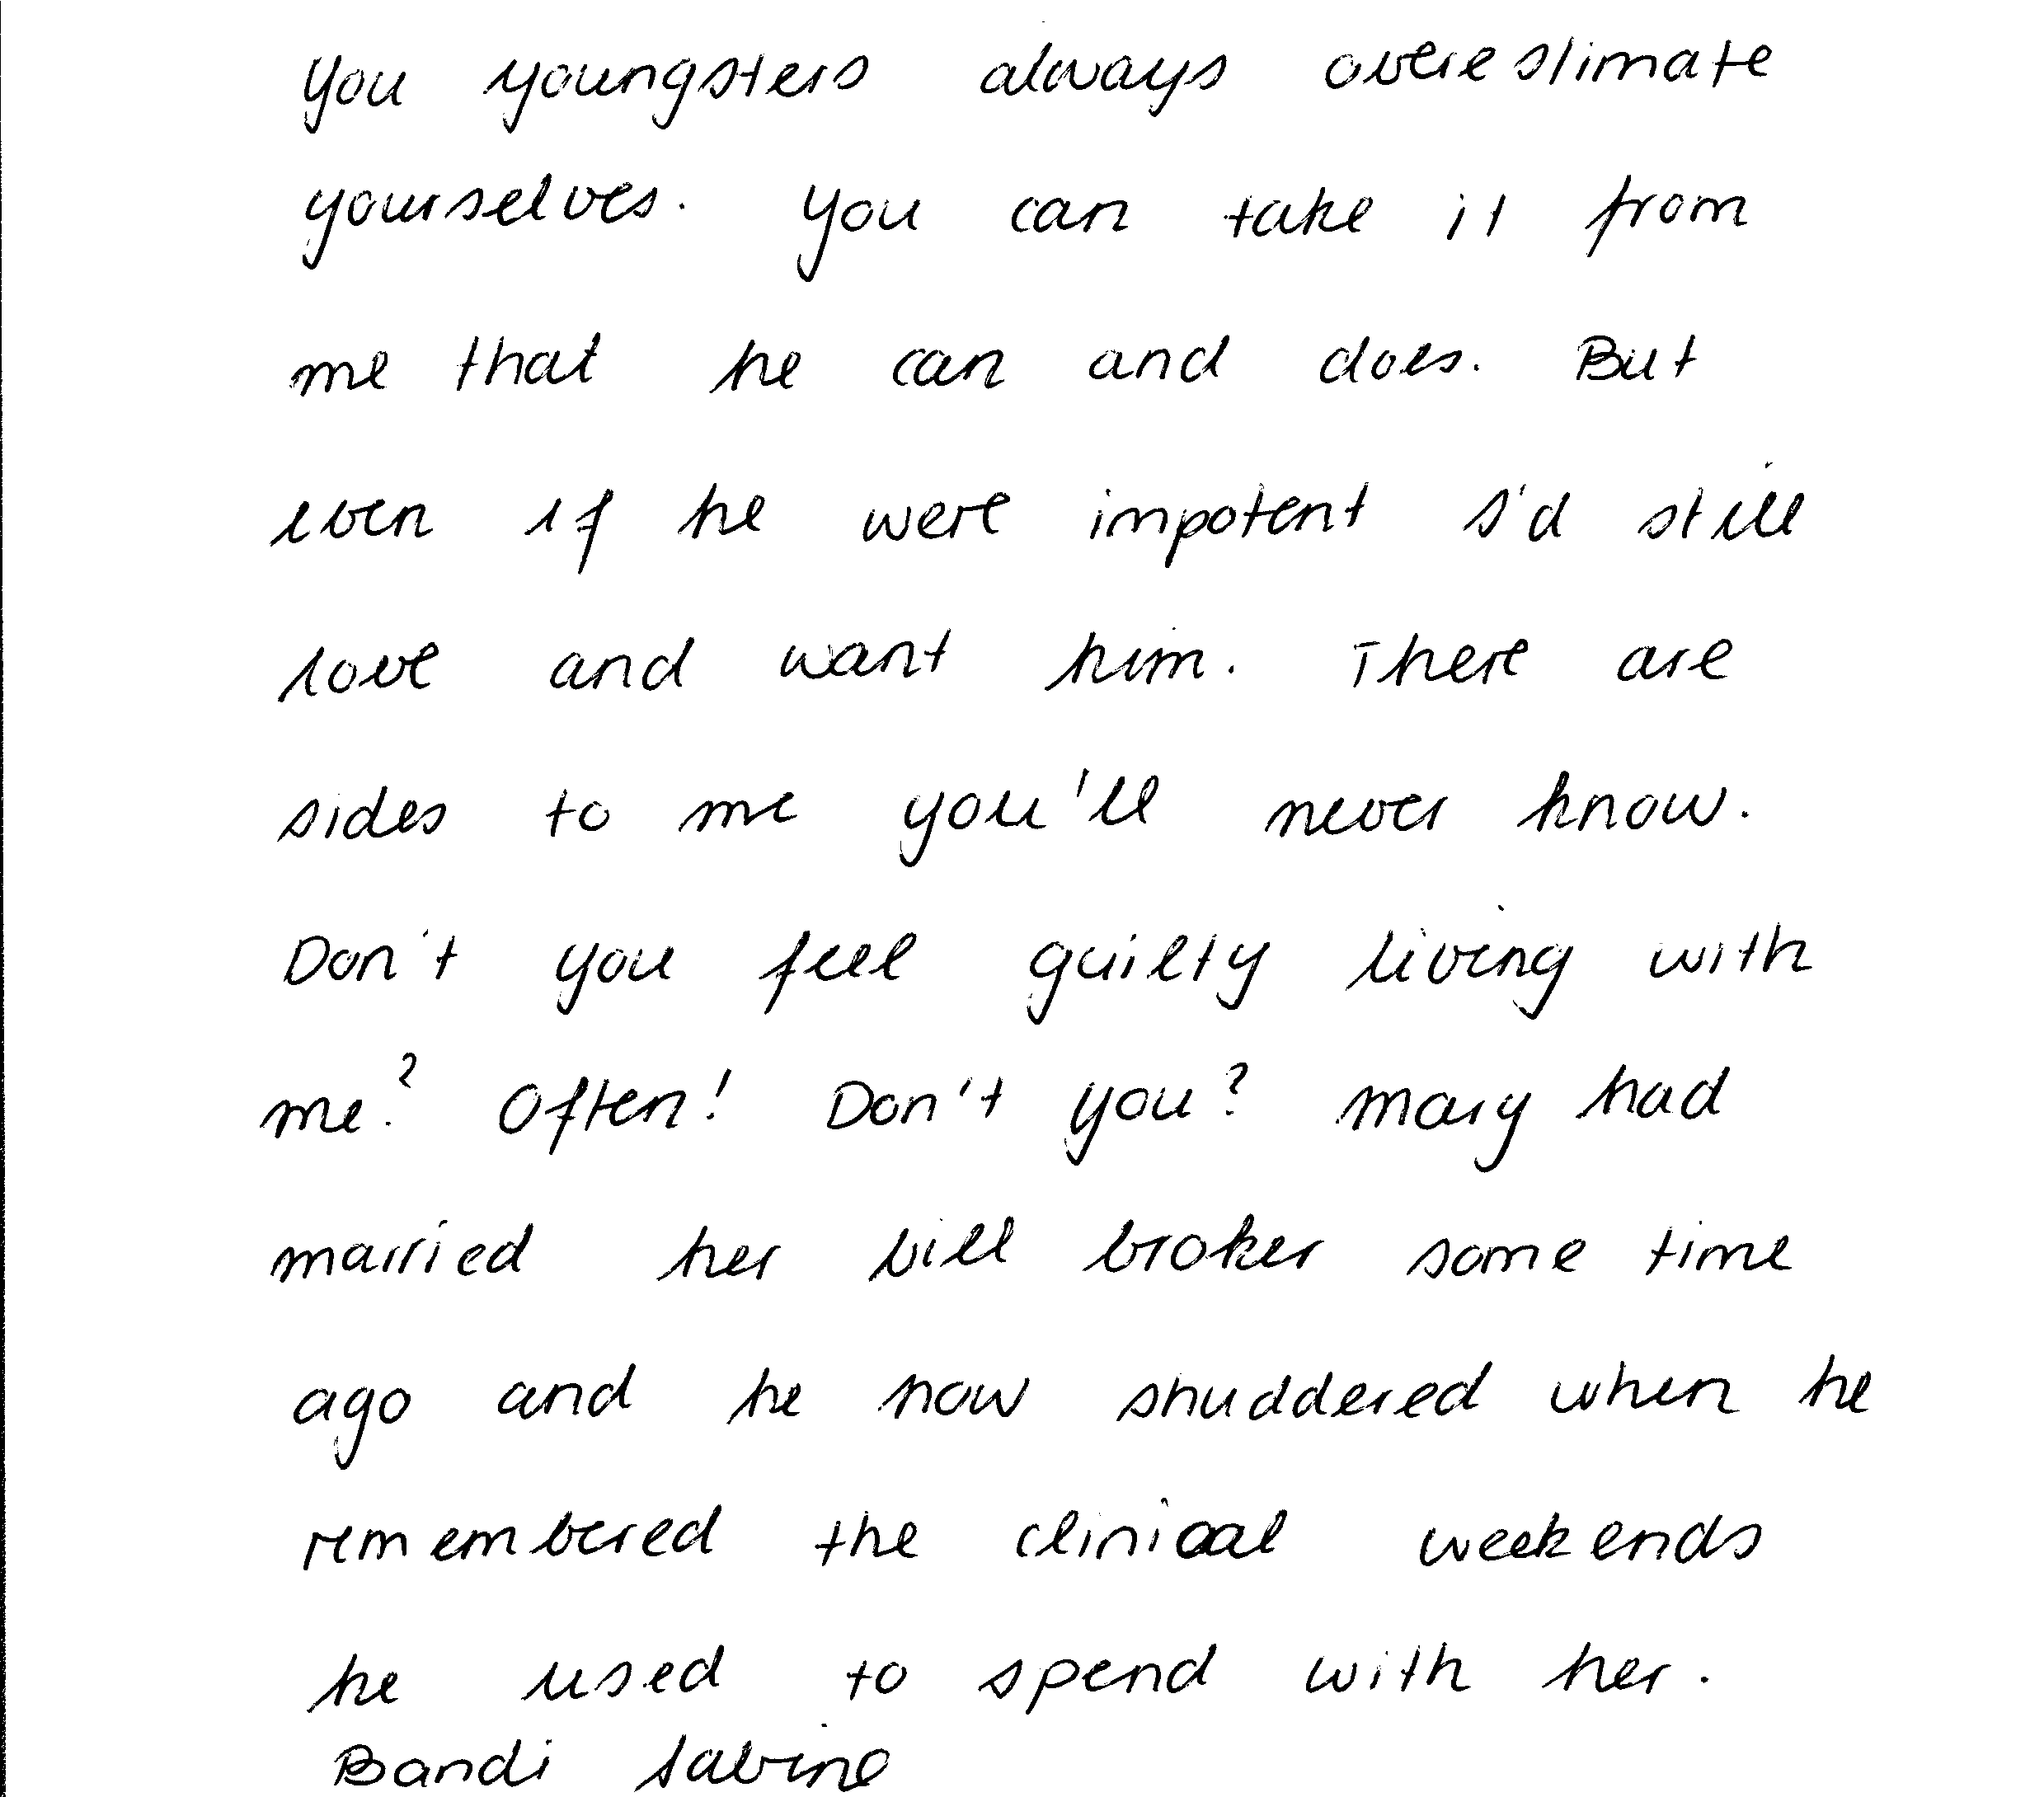 You youngsters always overestimate
yourselves. You can take it from
me that he can and does. But
even if he were impotent I'd still
love and want him. There are
sides to me you'll never know.
Don't you feel guilty living with
me? Often! Don't you? Mary had
married her bill broker some time
ago and he now shuddered when he
remembered the clinical weekends
he used to spend with her.
Bandi Sabine